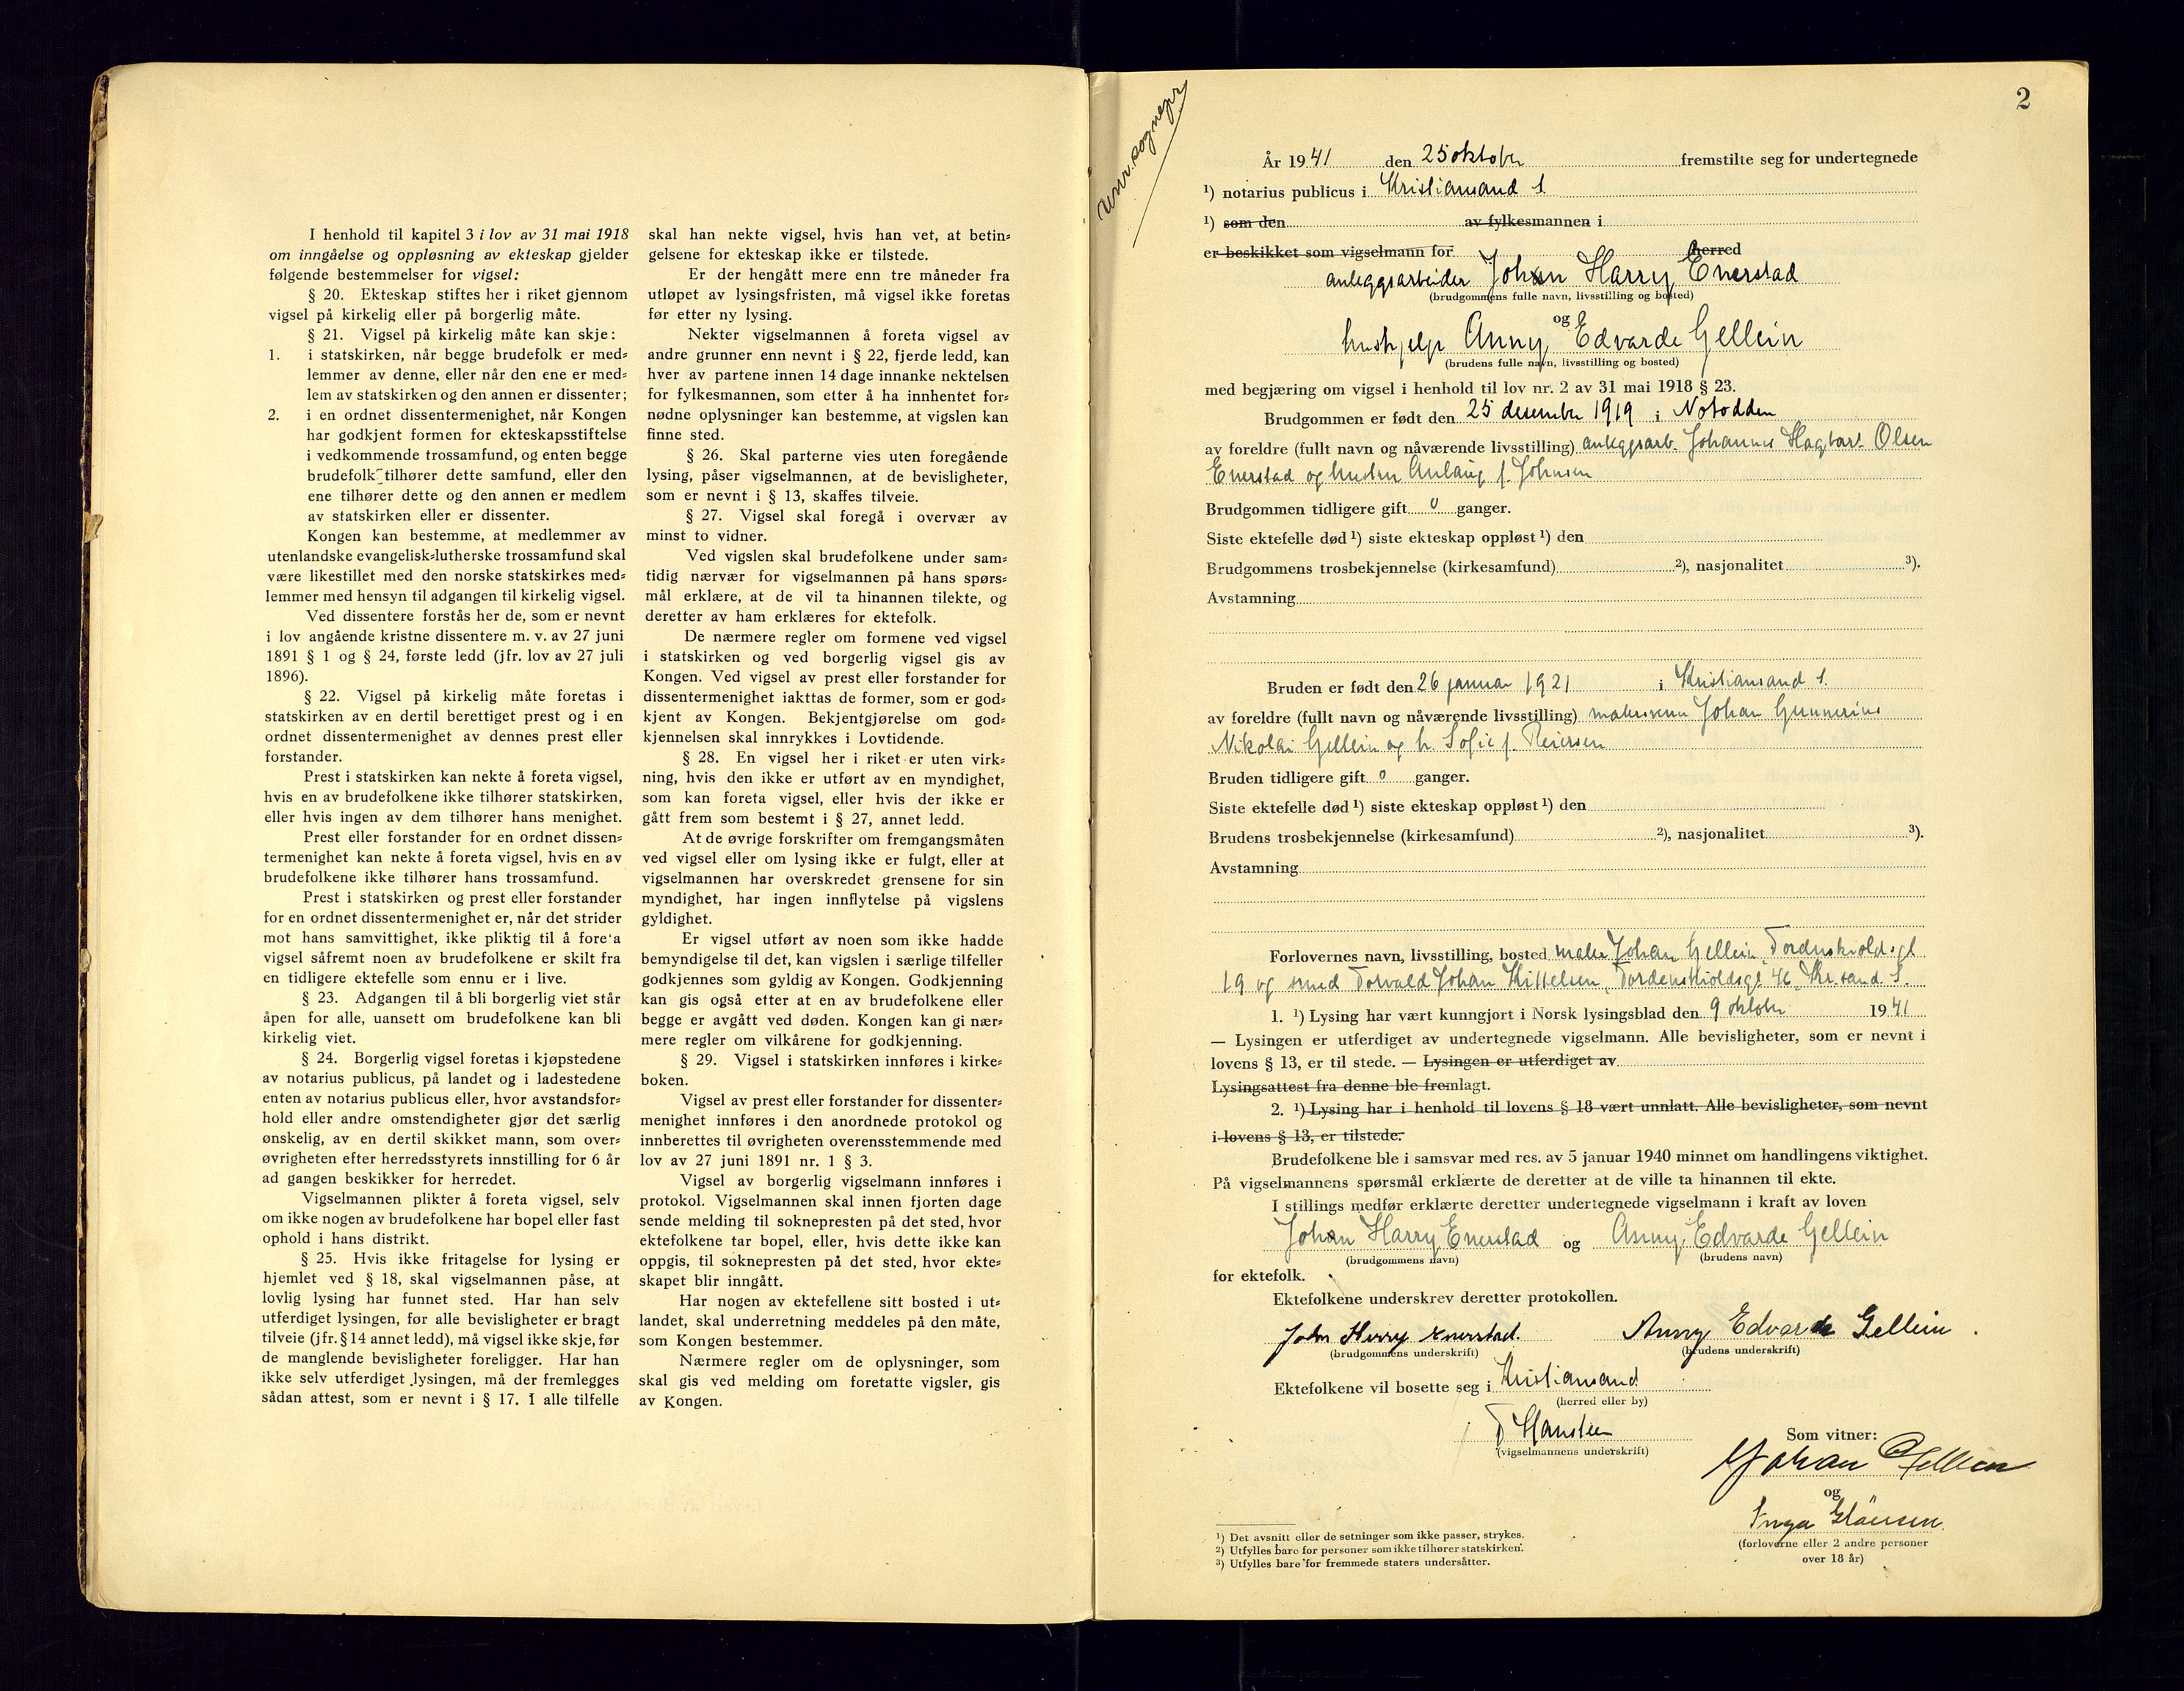 I henhold til kapitel 3 i lov av 31 mai 1918
om inngåelse og oppløsning av ekteskap gjelder
følgende bestemmelser for vigsel:
§ 20. Ekteskap stiftes her i riket gjennom
vigsel på kirkelig eller på borgerlig måte.
§ 21. Vigsel på kirkelig måte kan skje:
1. i statskirken, når begge brudefolk er med=
lemmer av denne, eller når den ene er med=
lem av statskirken og den annen er dissenter;
2. i en ordnet dissentermenighet, når Kongen
har godkjent formen for ekteskapsstiftelse
i vedkommende trossamfund, og enten begge
brudefolk tilhører dette samfund, eller den
ene tilhører dette og den annen er medlem
av statskirken eller er dissenter.
Kongen kan bestemme, at medlemmer av
utenlandske evangelisk=lutherske trossamfund skal
være likestillet med den norske statskirkes med=
lemmer med hensyn til adgangen til kirkelig vigsel.
Ved dissentere forstås her de, som er nevnt
i lov angående kristne dissentere m. v. av 27 juni
1891 § 1 og § 24, første ledd (jfr. lov av 27 juli
1896).
§ 22. Vigsel på kirkelig måte foretas i
statskirken av en dertil berettiget prest og i en
ordnet dissentermenighet av dennes prest eller
forstander.
Prest i statskirken kan nekte å foreta vigsel,
hvis en av brudefolkene ikke tilhører statskirken,
eller hvis ingen av dem tilhører hans menighet.
Prest eller forstander for en ordnet dissen=
termenighet kan nekte å foreta vigsel, hvis en av
brudefolkene ikke tilhører hans trossamfund.
Prest i statskirken og prest eller forstander
for en ordnet dissentermenighet er, når det strider
mot hans samvittighet, ikke pliktig til å fore'a
vigsel såfremt noen av brudefolkene er skilt fra
en tidligere ektefelle som ennu er i live.
§ 23. Adgangen til å bli borgerlig viet står
åpen for alle, uansett om brudefolkene kan bli
kirkelig viet.
§ 24. Borgerlig vigsel foretas i kjøpstedene
av notarius publicus, på landet og i ladestedene
enten av notarius publicus eller, hvor avstandsfor=
hold eller andre omstendigheter gjør det særlig
ønskelig, av en dertil skikket mann, som over=
øvrigheten efter herredsstyrets innstilling for 6 år
ad gangen beskikker for herredet.
Vigselmannen plikter å foreta vigsel, selv
om ikke nogen av brudefolkene har bopel eller fast
ophold i hans distrikt.
§ 25. Hvis ikke fritagelse for lysing er
hjemlet ved § 18, skal vigselmannen påse, at
lovlig lysing har funnet sted. Har han selv
utferdiget lysingen, før alle bevisligheter er bragt
tilveie (jfr. § 14 annet ledd), må vigsel ikke skje, før
de manglende bevisligheter foreligger. Har han
ikke selv utferdiget lysingen, må der fremlegges
sådan attest, som er nevnt i § 17. I alle tilfelle
skal han nekte vigsel, hvis han vet, at betin=
gelsene for ekteskap ikke er tilstede.
Er der hengått mere enn tre måneder fra
utløpet av lysingsfristen, må vigsel ikke foretas
før etter ny lysing.
Nekter vigselmannen å foreta vigsel av
andre grunner enn nevnt i § 22, fjerde ledd, kan
hver av partene innen 14 dage innanke nektelsen
for fylkesmannen, som etter å ha innhentet for=
nødne oplysninger kan bestemme, at vigslen kan
finne sted.
§ 26. Skal parterne vies uten foregående
lysing, påser vigselmannen, at de bevisligheter,
som er nevnt i § 13, skaffes tilveie.
§ 27. Vigsel skal foregå i overvær av
minst to vidner.
Ved vigslen skal brudefolkene under sam=
tidig nærvær for vigselmannen på hans spørs=
mål erklære, at de vil ta hinannen tilekte, og
deretter av ham erklæres for ektefolk.
De nærmere regler om formene ved vigsel
i statskirken og ved borgerlig vigsel gis av
Kongen. Ved vigsel av prest eller forstander for
dissentermenighet iakttas de former, som er god=
kjent av Kongen. Bekjentgjørelse om god=
kjennelsen skal innrykkes i Lovtidende.
§ 28. En vigsel her i riket er uten virk=
ning, hvis den ikke er utført av en myndighet,
som kan foreta vigsel, eller hvis der ikke er
gått frem som bestemt i § 27, annet ledd.
At de øvrige forskrifter om fremgangsmåten
ved vigsel eller om lysing ikke er fulgt, eller at
vigselmannen har overskredet grensene for sin
myndighet, har ingen innflytelse på vigslens
gyldighet.
Er vigsel utført av noen som ikke hadde
bemyndigelse til det, kan vigslen i særlige tilfeller
godkjennes som gyldig av Kongen. Godkjenning
kan gis også etter at en av brudefolkene eller
begge er avgått ved døden. Kongen kan gi nær=
mere regler om vilkårene for godkjenning.
§ 29. Vigsel i statskirken innføres i kirke=
boken.
Vigsel av prest eller forstander for dissenter=
menighet innføres i den anordnede protokol og
innberettes til øvrigheten overensstemmende med
lov av 27 juni 1891 nr. 1 § 3.
Vigsel av borgerlig vigselmann innføres i
protokol. Vigselmannen skal innen fjorten dage
sende melding til soknepresten på det sted, hvor
ektefolkene tar bopel, eller, hvis dette ikke kan
oppgis, til soknepresten på det sted, hvor ekte=
skapet blir inngått.
Har nogen av ektefellene sitt bosted i ut=
landet, skal underretning meddeles på den måte,
som Kongen bestemmer.
Nærmere regler om de oplysninger, som
skal gis ved melding om foretatte vigsler, gis
av Kongen.
2
År 1941 den 25 oktober fremstilte seg for undertegnede
¹) notarius publicus i Kristiansand S.
¹) som den av fylkesmannen i
er beskikket som vigselmann for herred
anleggsarbeider Johan Harry Enerstad
(brudgommens fulle navn, livsstilling og bosted)
og
hushjelp Anny Edvarde Gellein
(brudens fulle navn, livsstilling og bosted)
med begjæring om vigsel i henhold til lov nr. 2 av 31 mai 1918 § 23.
Brudgommen er født den 25 desember 1919 i Notodden
av foreldre (fullt navn og nåværende livsstilling) anleggsarb. Johannes Hagbart Olsen
Enerstad og hustru Anlaug f. Johnsen
Brudgommen tidligere gift 0 ganger.
Siste ektefelle død ¹) siste ekteskap oppløst ¹) den
Brudgommens trosbekjennelse (kirkesamfund) ²), nasjonalitet ³).
Avstamning
Bruden er født den 26 januar 1921 i Kristiansand S.
av foreldre (fullt navn og nåværende livsstilling) malersvenn Johan Gunnerius
Nikolai Gellein og h. Sofie f. Reiersen
Bruden tidligere gift 0 ganger.
Siste ektefelle død ¹) siste ekteskap oppløst ¹) den
Brudens trosbekjennelse (kirkesamfund) ²), nasjonalitet ³).
Avstamning
Forlovernes navn, livsstilling, bosted maler Johan Gellein, Tordenskioldsgt
19 og smed Torvald Johan Kittelsen, Tordenskioldsgt. 46, Kr.sand S.
1. ¹) Lysing har vært kunngjort i Norsk lysingsblad den 9 oktober 1941
— Lysingen er utferdiget av undertegnede vigselmann. Alle bevisligheter, som er nevnt i
lovens § 13, er til stede. — Lysingen er utferdiget av
Lysingsattest fra denne ble fremlagt.
2. ¹) Lysing har i henhold til lovens § 18 vært unnlatt. Alle bevisligheter, som nevnt
i lovens § 13, er tilstede.
Brudefolkene ble i samsvar med res. av 5 januar 1940 minnet om handlingens viktighet.
På vigselmannens spørsmål erklærte de deretter at de ville ta hinannen til ekte.
I stillings medfør erklærte deretter undertegnede vigselmann i kraft av loven
Johan Harry Enerstad og Anny Edvarde Gellein
(brudgommens navn) (brudens navn)
for ektefolk.
Ektefolkene underskrev deretter protokollen.
John Harry Enerstad. Anny Edvarde Gellein.
(brudgommens underskrift) (brudens underskrift)
Ektefolkene vil bosette seg i Kristiansand
(herred eller by)
T Hansteen
(vigselmannens underskrift)
Som vitner:
Johan Gellein
og
Inga
(forloverne eller 2 andre personer
over 18 år)
¹) Det avsnitt eller de setninger som ikke passer, strykes.
²) Utfylles bare for personer som ikke tilhører statskirken.
³) Utfylles bare for fremmede staters undersåtter.